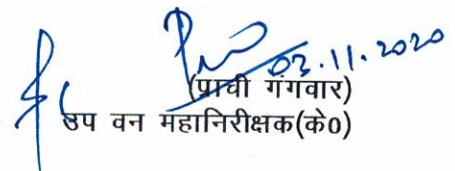 03.11.2020
(प्राची गंगवार)
उप वन महानिरीक्षक(के0)